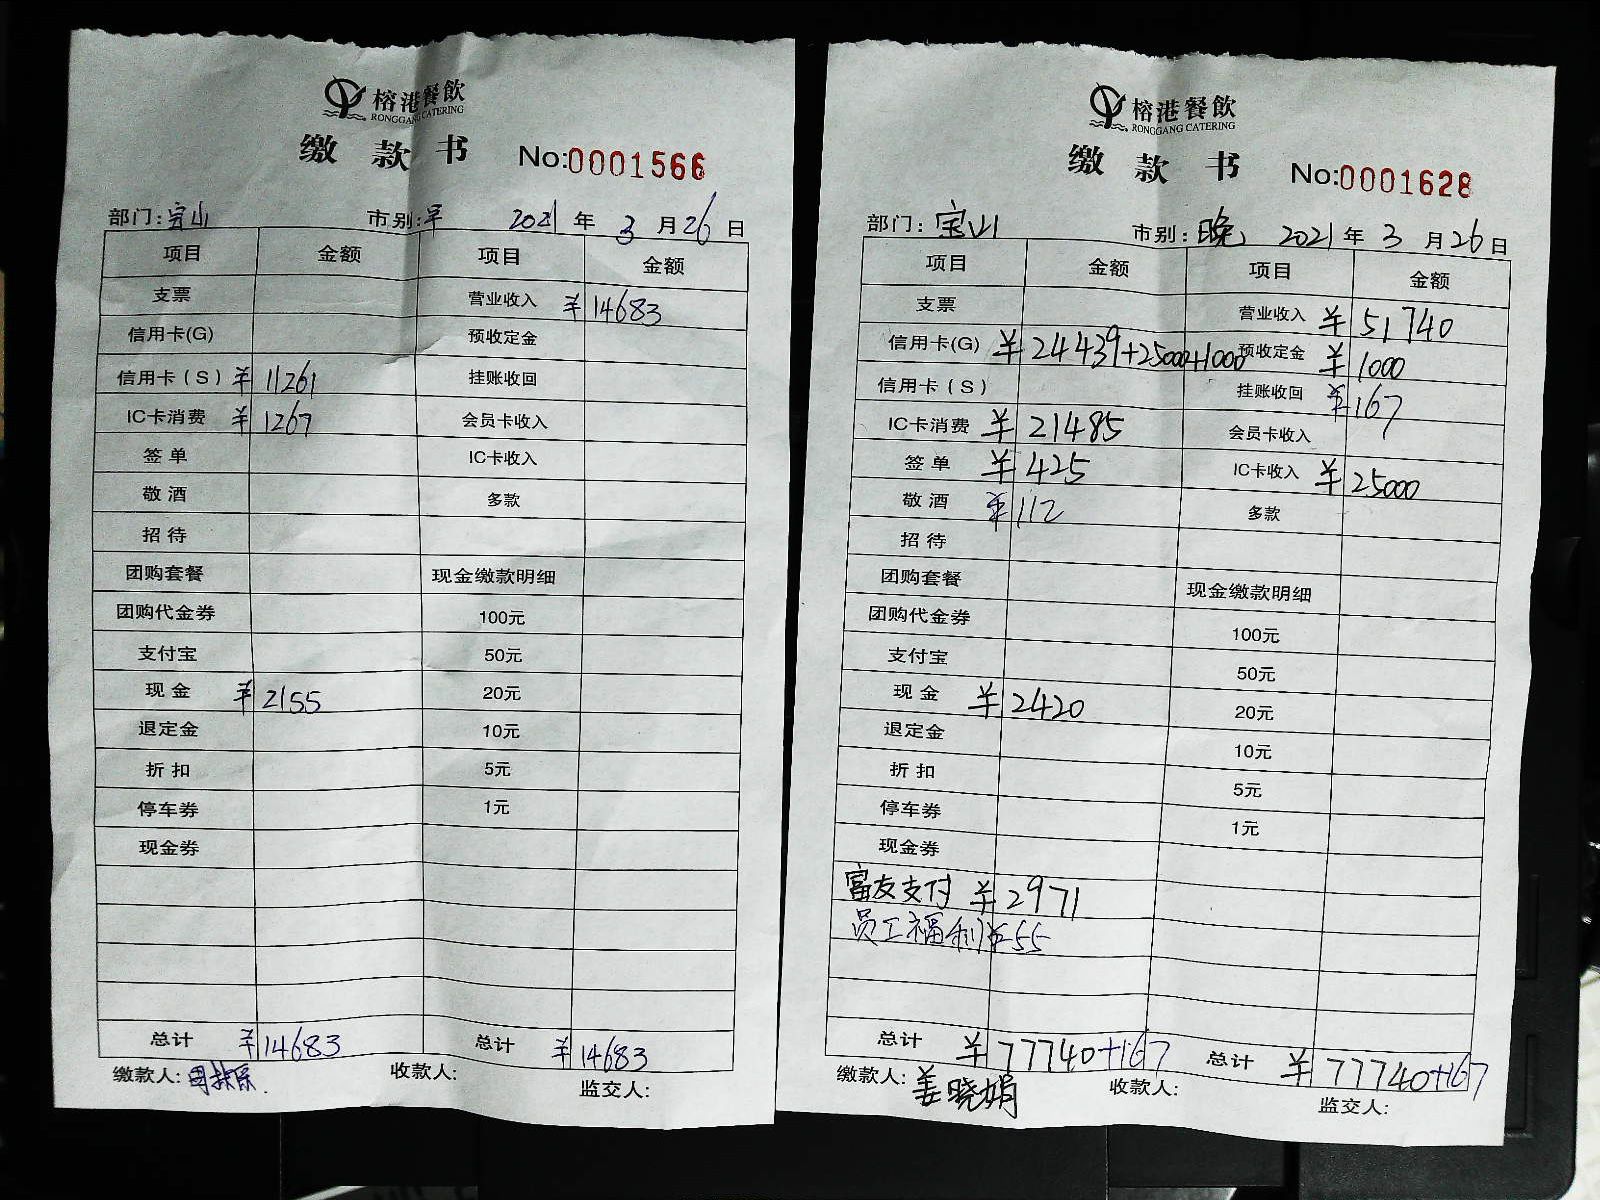 榕港餐飲
RONGGANG CATERING
缴款书 No:0001566
部门:宝山 市别:早 2021年3月26日
项目 金额 项目 金额
支票 营业收入 ¥14683
信用卡(G) 预收定金
信用卡(S) ¥11261 挂账收回
IC卡消费 ¥1267 会员卡收入
签单 IC卡收入
敬酒 多款
招待
团购套餐 现金缴款明细
团购代金券 100元
支付宝 50元
现金 ¥2155 20元
退定金 10元
折扣 5元
停车券 1元
现金券
总计 ¥14683 总计 ¥14683
缴款人: 收款人: 监交人:
榕港餐飲
RONGGANG CATERING
缴款书 No:0001628
部门:宝山 市别:晚 2021年3月26日
项目 金额 项目 金额
支票 营业收入 ¥51740
信用卡(G) ¥24439+25000+1000 预收定金 ¥1000
信用卡(S) 挂账收回 ¥167
IC卡消费 ¥21485 会员卡收入
签单 ¥425 IC卡收入 ¥25000
敬酒 ¥112 多款
招待
团购套餐 现金缴款明细
团购代金券 100元
支付宝 50元
现金 ¥2420 20元
退定金 10元
折扣 5元
停车券 1元
现金券
富友支付 ¥2971
员工福利 ¥55
总计 ¥77740+167 总计 ¥77740+167
缴款人:姜晓娟 收款人: 监交人: